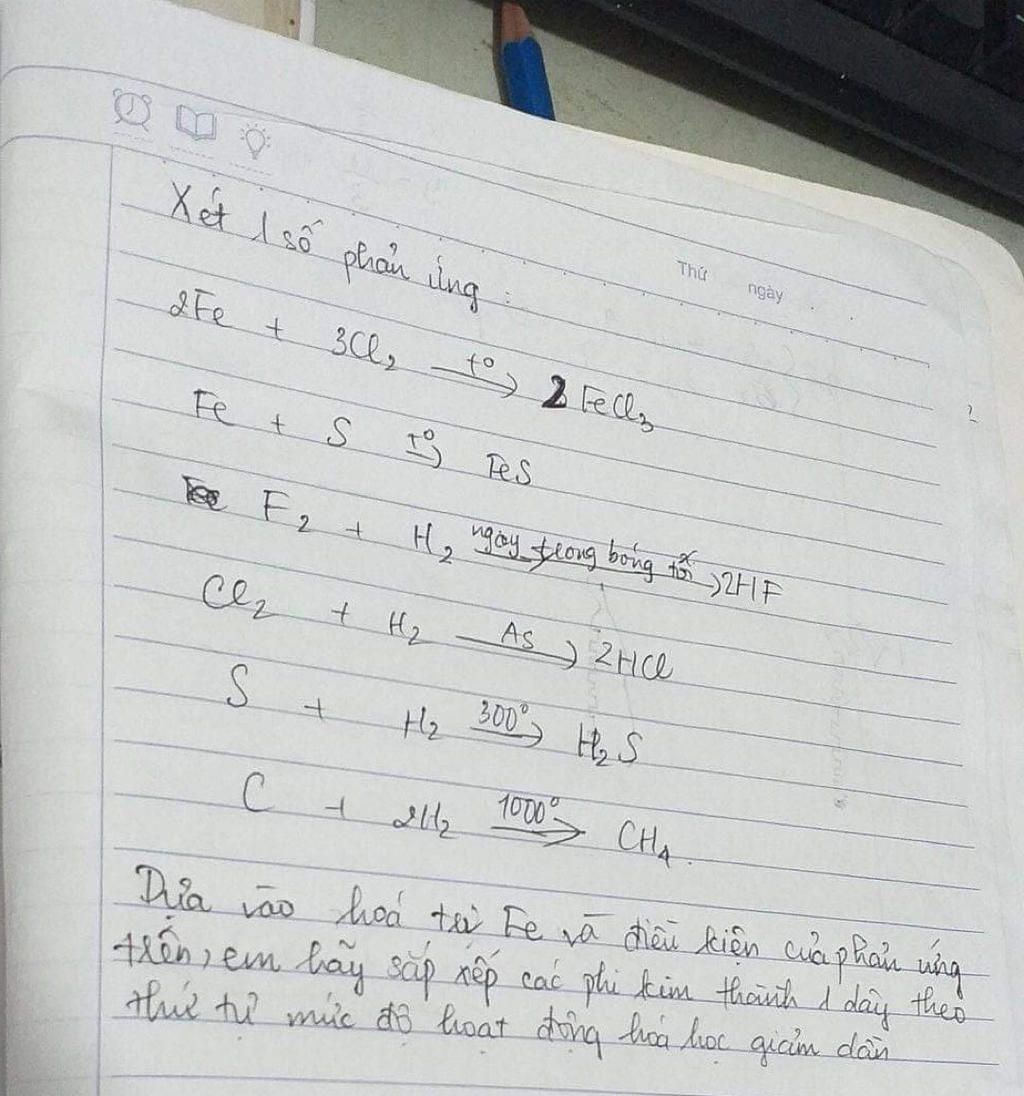 Thứ ngày
Xét 1 số phản ứng :
2Fe + 3Cl₂ —t°→ 2FeCl₃
Fe + S —t°→ FeS
F₂ + H₂ —ngay trong bóng tối→ 2HF
Cl₂ + H₂ —As→ 2HCl
S + H₂ —300°→ H₂S
C + 2H₂ —1000°→ CH₄.
Dựa vào hoá trị Fe và điều kiện của phản ứng
trên, em hãy sắp xếp các phi kim thành 1 dãy theo
thứ tự mức độ hoạt động hoá học giảm dần